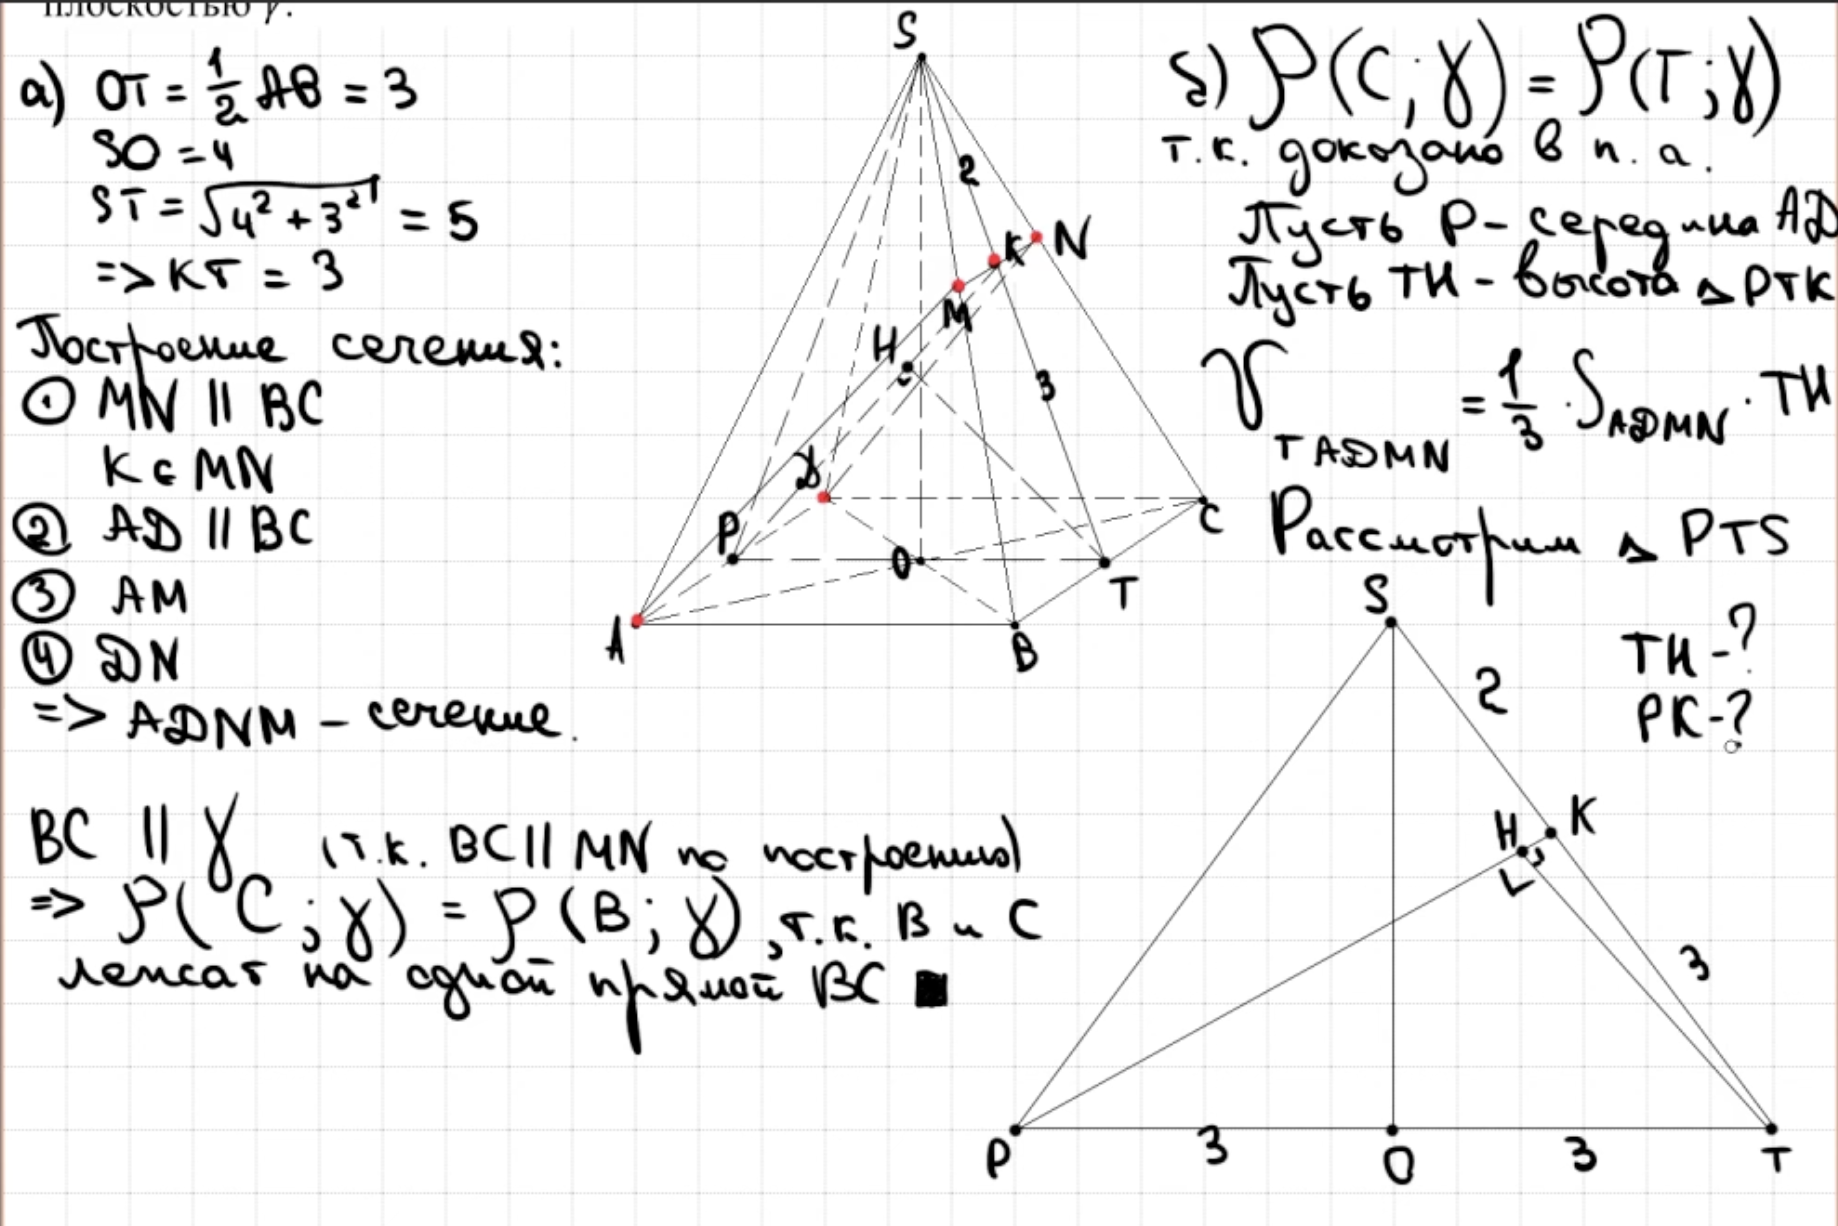 плоскостью γ.
а) OT = 1/2 AB = 3
SO = 4
ST = √(4² + 3²) = 5
=> KT = 3
Построение сечения:
① MN || BC
K ∈ MN
② AD || BC
③ AM
④ DN
=> ADNM - сечение.
BC || γ (т.к. BC || MN по построению)
=> ρ(C; γ) = ρ(B; γ), т.к. B и C
лежат на одной прямой BC ■
S
2
K
N
M
H
3
D
P
O
C
T
A
B
б) ρ(C; γ) = ρ(T; γ)
т.к. доказано в п. а.
Пусть P - середина AD
Пусть TH - высота △ PTK
V TADMN = 1/3 · S ADMN · TH
Рассмотрим △ PTS
S
TH - ?
2
PK - ?
H
K
3
P
3
O
3
T